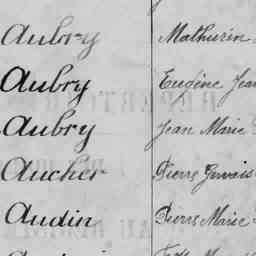 Aubry Mathurin
Aubry Eugène Jean
Aubry Jean Marie
Aucher Pierre Gervais
Audin Pierre Marie